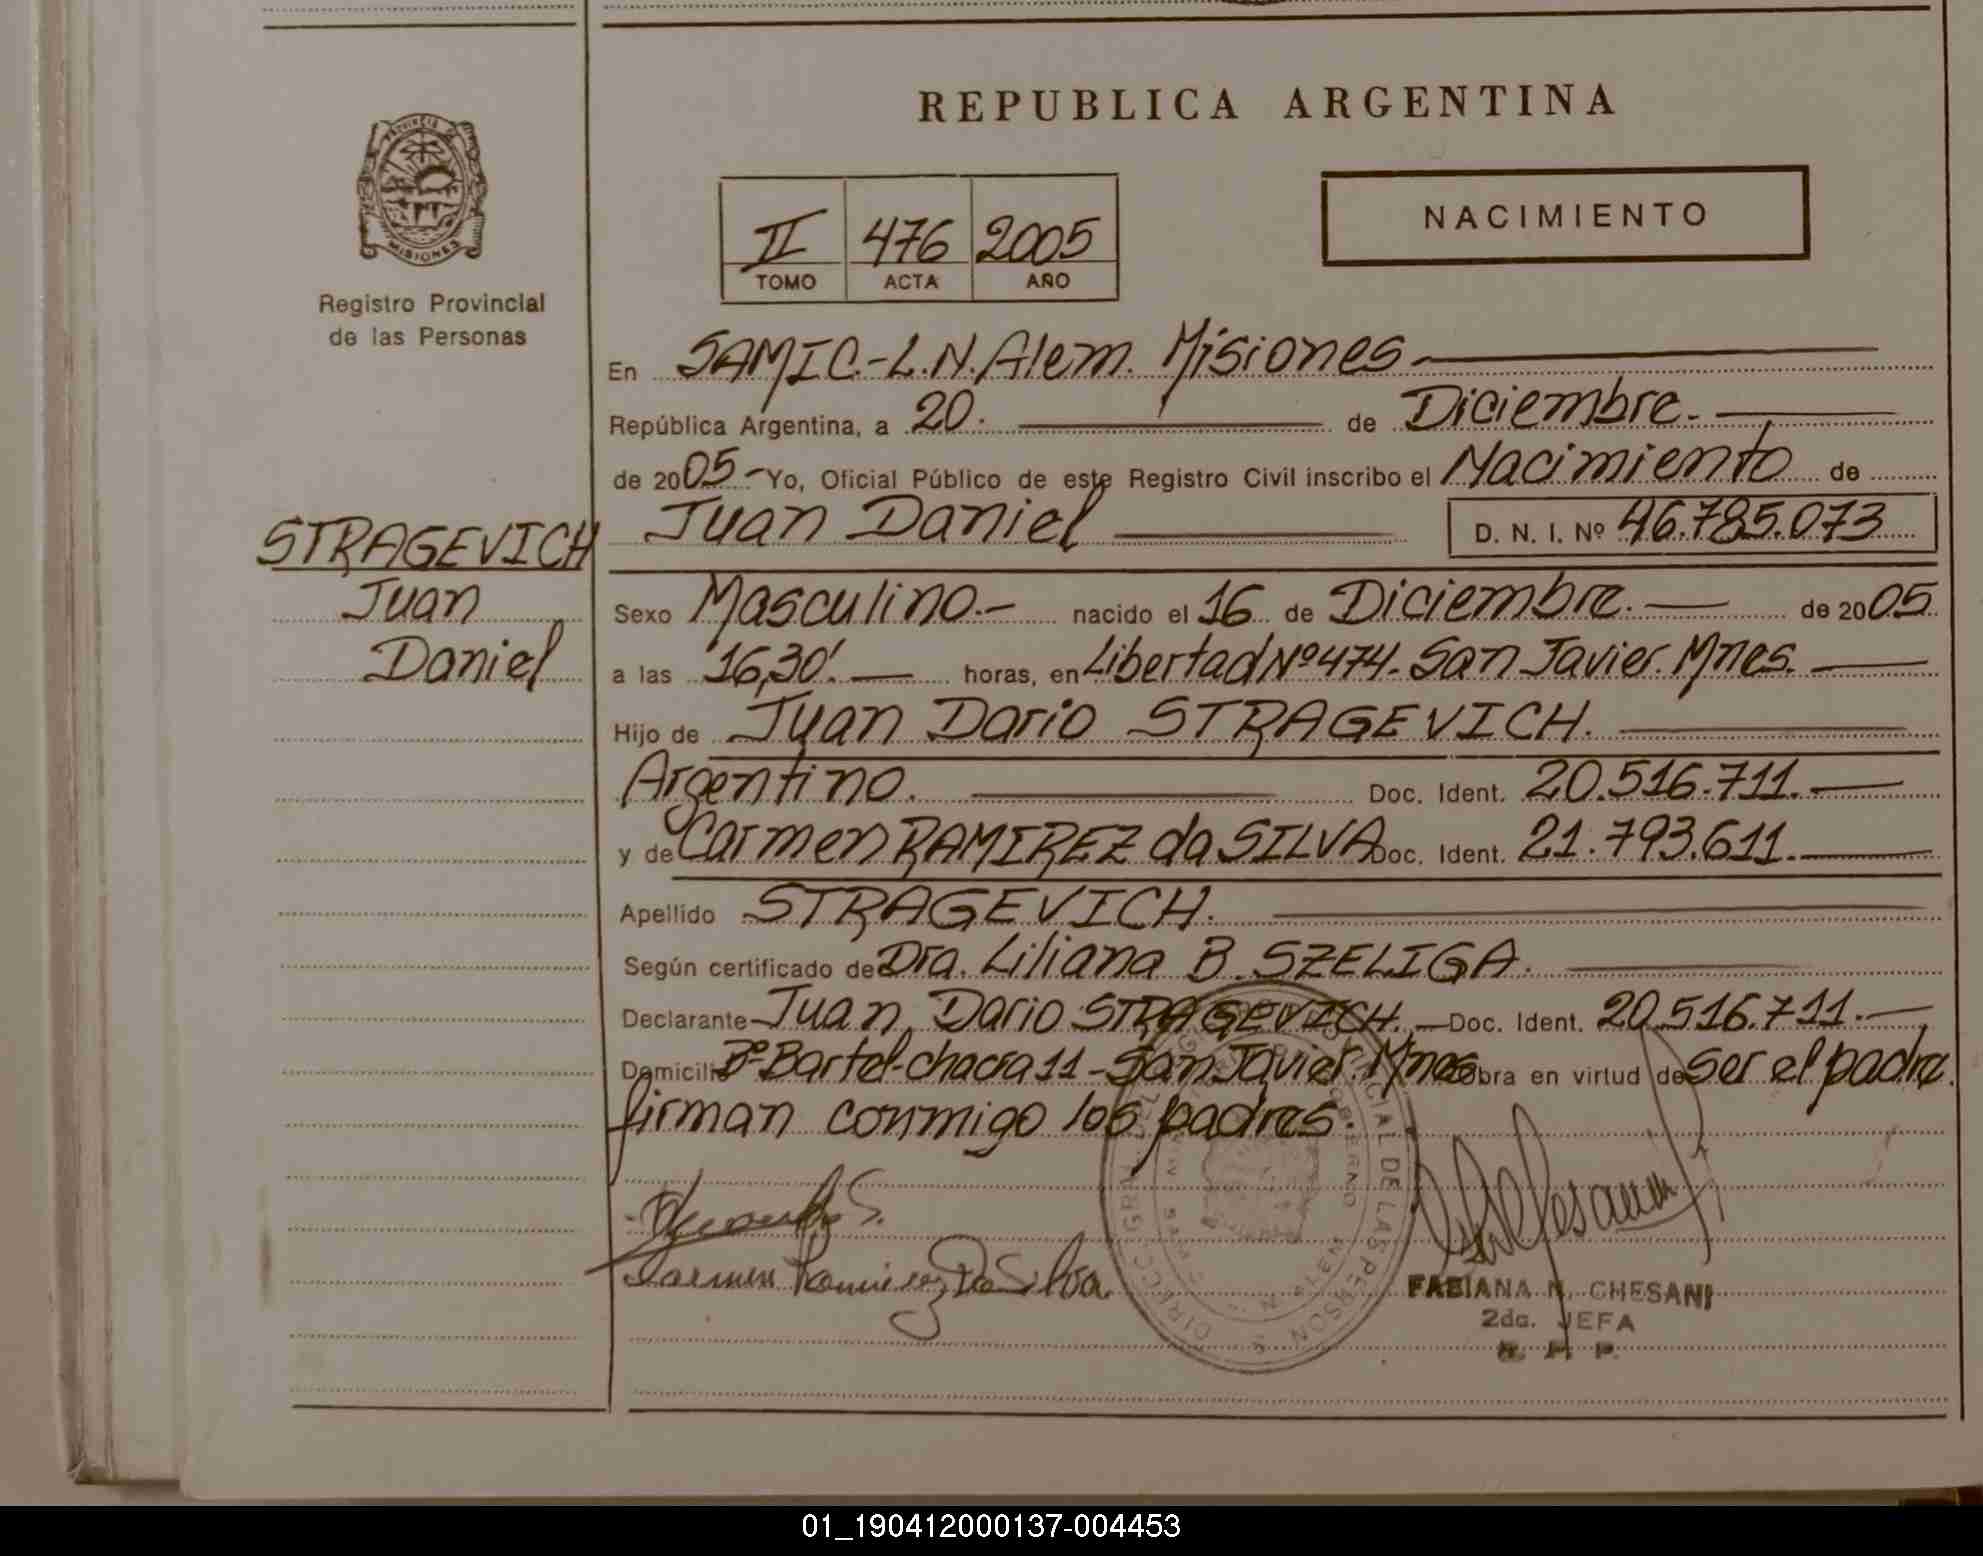 REPUBLICA ARGENTINA
PROVINCIA DE
MISIONES
Registro Provincial
de las Personas
II 476 2005
TOMO ACTA AÑO
NACIMIENTO
En SAMIC.-L.N.Alem. Misiones
República Argentina, a 20. de Diciembre.
de 2005 Yo, Oficial Público de este Registro Civil inscribo el Nacimiento de
STRAGEVICH
Juan
Daniel
Juan Daniel D. N. I. Nº 46.785.073
Sexo Masculino.- nacido el 16 de Diciembre. de 2005
a las 16,30'. horas, en Libertad Nº 474- San Javier. Mnes.
Hijo de Juan Dario STRAGEVICH.
Argentino. Doc. Ident. 20.516.711.
y de Carmen RAMIREZ da SILVA Doc. Ident. 21.793.611.
Apellido STRAGEVICH.
Según certificado de Dra. Liliana B. SZELIGA.
Declarante Juan Dario STRAGEVICH. Doc. Ident. 20.516.711.
Domicilio Bº Bartel-chacra 11-San Javier. Mnes obra en virtud de ser el padre.
firman conmigo los padres.
Carmen Ramirez Da Silva
FABIANA N. CHESANI
2da. JEFA
R. P. P.
01_190412000137-004453